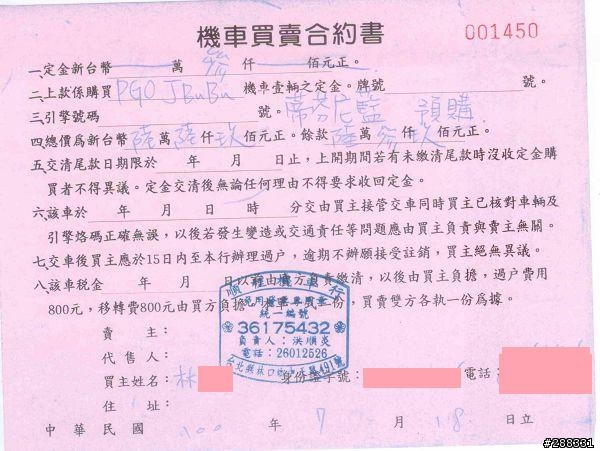 機車買賣合約書
001450
一定金新台幣 萬 參 仟 佰元正。
二上款係購買 PGO JBuBu 機車壹輛之定金。牌號 號。
三引擎號碼 號。蒂芬尼藍 預購
四總價為新台幣 陸 萬 陸 仟 玖 佰元正。餘款 陸 萬 參 仟 玖 佰元正。
五交清尾款日期限於 年 月 日止，上開期間若有未繳清尾款時沒收定金購
買者不得異議。定金交清後無論任何理由不得要求收回定金。
六該車於 年 月 日 時 分交由買主接管交車同時買主已核對車輛及
引擎烙碼正確無誤，以後若發生變造或交通責任等問題應由買主負責與賣主無關。
七交車後買主應於15日內至本行辦理過戶，逾期不辦願接受註銷，買主絕無異議。
八該車稅金 年 月 日以前由賣方負責繳清，以後由買主負擔，過戶費用
800元，移轉費800元由買方負擔 份，買賣雙方各執一份為據。
統一編號
36175432
負責人：洪順炎
電話：26012526
台北縣林口鄉 491號
賣主：
代售人：
買主姓名：林
身份證字號：
電話：
住址：
中華民國 100 年 7 月 18 日立
#288331